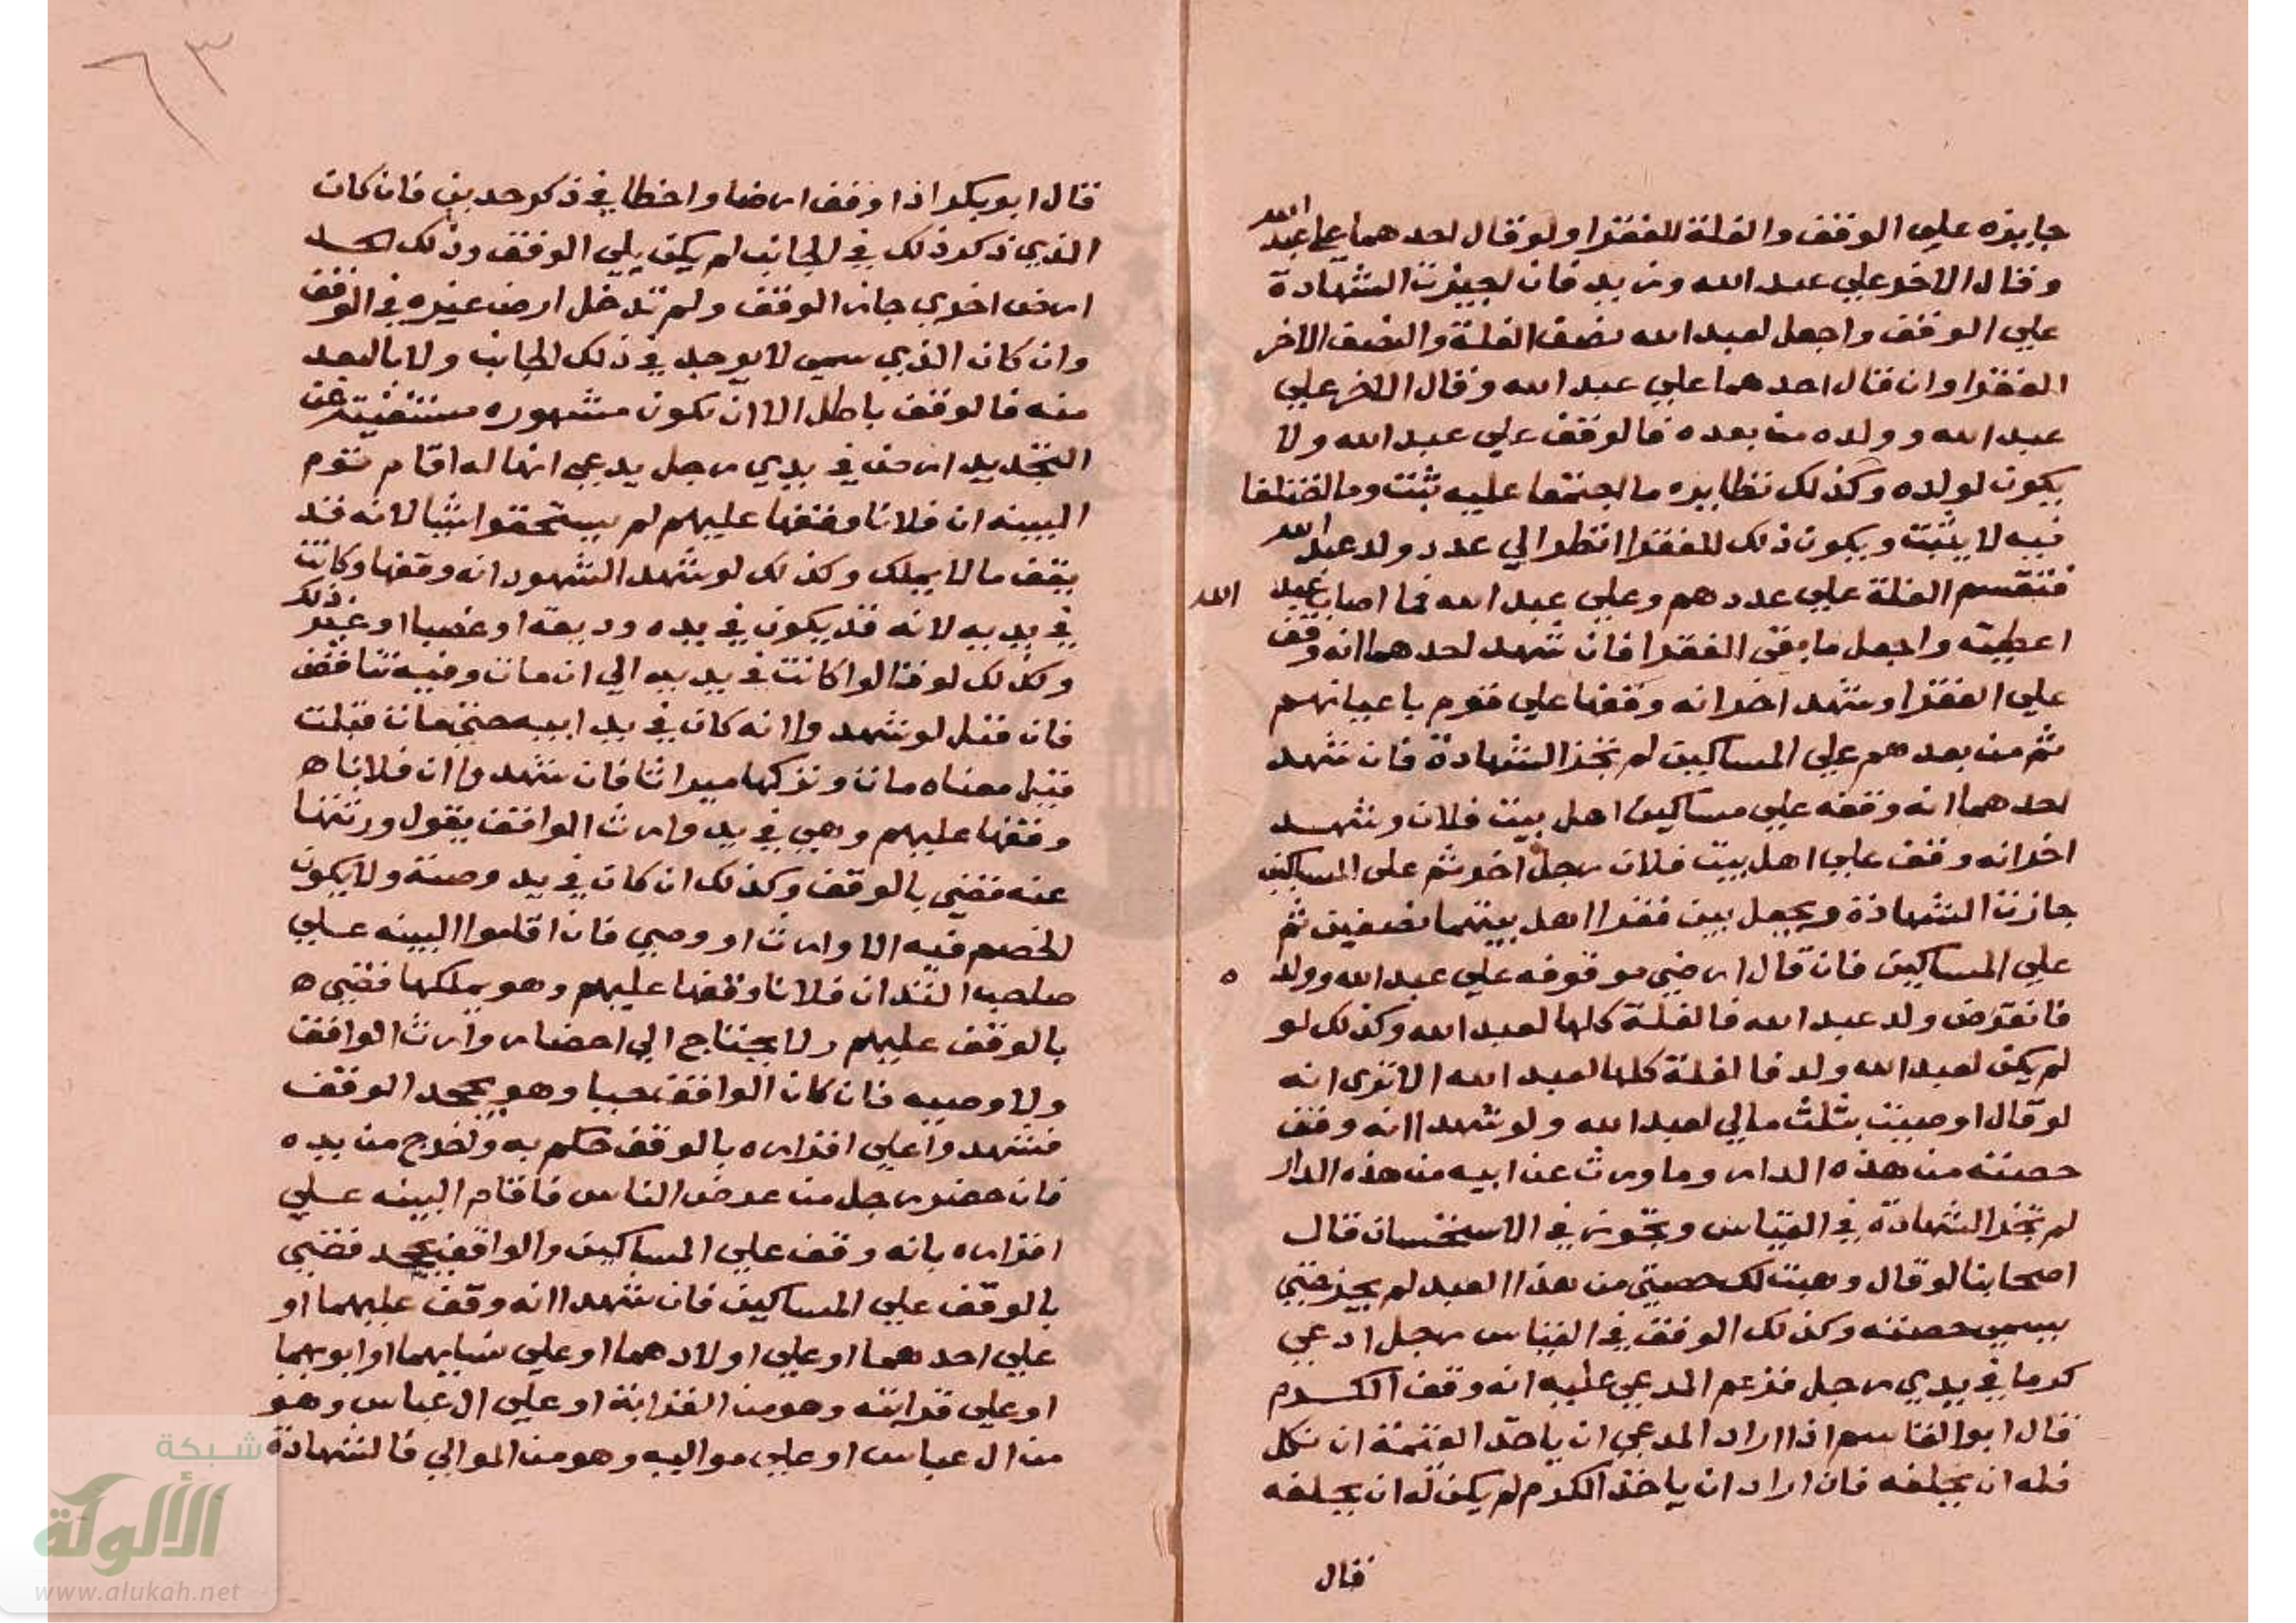 جايزه علي الوقف والغلة للفقرا ولو قال احدهما علي عبد الله
وقال الاخر علي عبد الله وزيد فان اجيزت الشهادة
علي الوقف واجعل لعبد الله نصف الغلة والنصف الاخر
الفقرا وان قال احدهما علي عبد الله وقال الاخر علي
عبد الله وولده من بعده فالوقف علي عبد الله ولا
يكون لولده وكذلك نظايره ما اجتمعا عليه يثبت وما اختلفا
فيه لا يثبت ويكون ذلك للفقرا انظر الي عدد ولد عبد الله
فتقسم الغلة علي عددهم وعلي عبد الله فما اصاب عبد الله
اعطيته واجعل ما بقي الفقرا فان شهد احدهما انه وقف
علي الفقرا وشهد اخر انه وقفها علي قوم باعيانهم
ثم من بعدهم علي المساكين لم تجز الشهادة فان شهد
احدهما انه وقفه علي مساكين اهل بيت فلان وشهد
اخر انه وقف علي اهل بيت فلان رجل اخر ثم علي المساكين
جازت الشهادة ويجعل بين فقرا اهل بيتهما نصفين ثم
علي المساكين فان قال ارضي موقوفه علي عبد الله وولد ه
فانقرض ولد عبد الله فالغلة كلها لعبد الله وكذلك لو
لم يكن لعبد الله ولد فالغلة كلها لعبد الله الا تري انه
لو قال اوصيت بثلث مالي لعبد الله ولو شهدا انه وقف
حصته من هذه الدار وما ورث عن ابيه من هذه الدار
لم تجز الشهادة في القياس وتجوز في الاستحسان قال
اصحابنا لو قال وهبت لك حصتي من هذا العبد لم يجز حتي
يسمي حصته وكذلك الوقف في القياس رجل ادعي
كرما في يدي رجل فزعم المدعي عليه انه وقف الكرم
قال ابو القاسم اذا اراد المدعي ان ياخذ القيمة ان نكل
فله ان يحلفه فان اراد ان ياخذ الكرم لم يكن له ان يحلفه
قال
٦٣
قال ابو بكر اذا وقف ارضا واخطا في ذكر حدين فان كان
الذي ذكر ذلك في الجانب لم يكن يلي الوقف وذلك الحد
ارض اخري جاز الوقف ولم تدخل ارض غيره في الوقف
وان كان الذي سمي لا يوجد في ذلك الجانب ولا بالبعد
منه فالوقف باطل الا ان تكون مشهوره مستغنية عن
التحديد ارض في يدي رجل يدعي انها له اقام قوم
البينه ان فلانا وقفها عليهم لم يستحقوا شيا لانه قد
يقف ما لا يملك وكذلك لو شهد الشهود انه وقفها وكانت
في يديه لانه قد يكون في يده وديعة او غصبا او غير ذلك
وكذلك لو قالوا كانت في يديه الي ان مات وفيه تناقض
فان قيل لو شهدوا انه كان في يد ابيه حتي مات قبلت
قيل معناه مات وتركها ميراثا فان شهدوا ان فلانا ه
وقفها عليهم وهي في يد وارث الواقف يقول ورثتها
عنه قضي بالوقف وكذلك ان كان في يد وصية ولا يكون
الخصم فيه الا وارث او وصي فان اقاموا البينه علي
صاحب اليد ان فلانا وقفها عليهم وهو يملكها قضي ه
بالوقف عليهم ولا يحتاج الي احضار وارث الواقف
ولا وصيه فان كان الواقف حيا وهو يجحد الوقف
فشهدوا علي اقراره بالوقف حكم به واخرج من يده
فان حضر رجل من عرض الناس فاقام البينه علي
اقراره بانه وقف علي المساكين والواقف يجحد قضي
بالوقف علي المساكين فان شهدا انه وقف عليهما او
علي احدهما او علي اولادهما او علي نسايهما او ابويهما
او علي قرابته وهو من القرابة او علي ال عباس وهو
من ال عباس او علي مواليه وهو من الموالي فالشهادة
شبكة
الألوكة
www.alukah.net